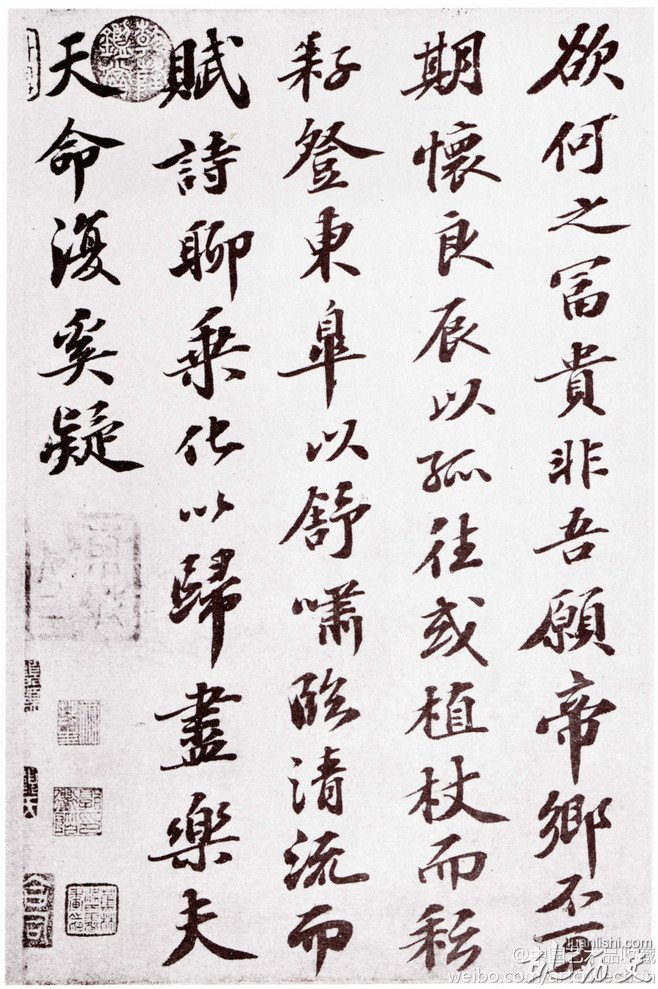 欲何之冨貴非吾願帝鄉不可
期懷良辰以孤往或植杖而耘
耔登東皋以舒嘯臨清流而
賦詩聊乘化以歸盡樂夫
天命復奚疑
合同